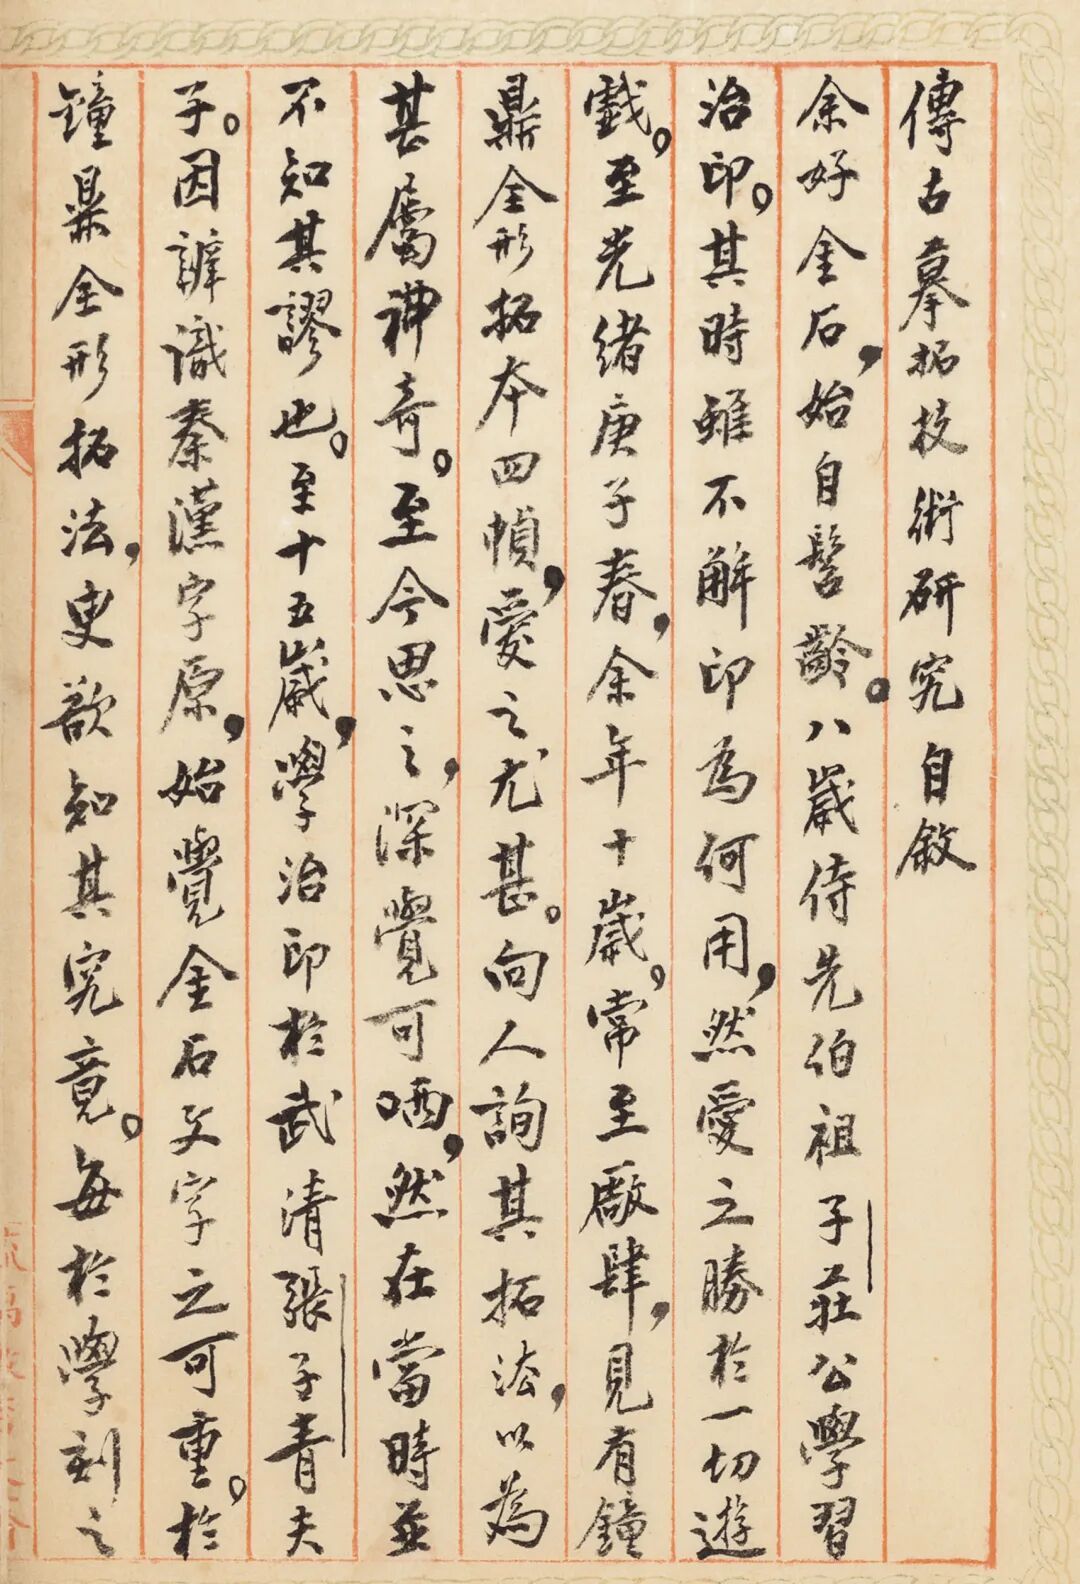 傳古摹拓技術研究自敘
余好金石，始自髫齡。八歲侍先伯祖子莊公學習
治印。其時雖不解印為何用，然愛之勝於一切遊
戲。至光緒庚子春，余年十歲。常至廠肆，見有鐘
鼎全形拓本四幀，愛之尤甚。向人詢其拓法，以為
甚屬神奇。至今思之，深覺可哂，然在當時並
不知其謬也。至十五歲，學治印於武清張子青夫
子。因諄識秦漢字原，始覺金石文字之可重。於
鐘鼎全形拓法，更欲知其究竟。每於學刻之